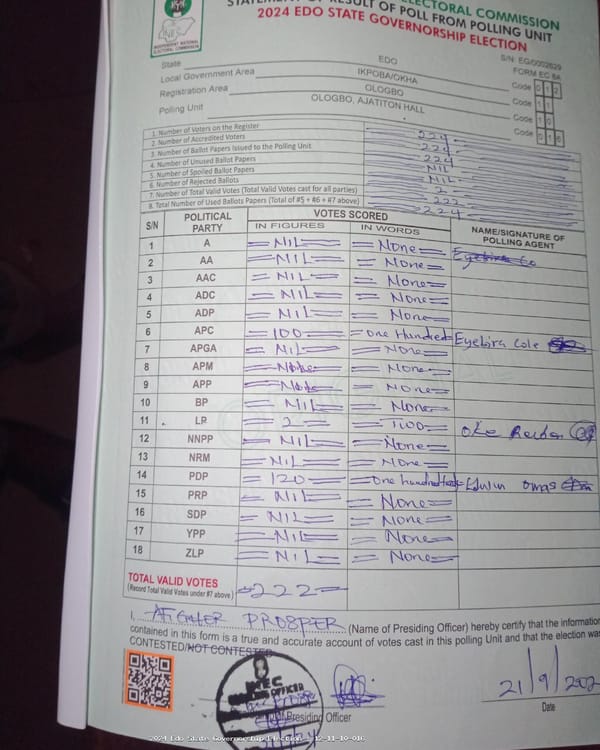 INDEPENDENT NATIONAL
ELECTORAL COMMISSION
ELECTORAL COMMISSION
STATEMENT OF RESULT OF POLL FROM POLLING UNIT
2024 EDO STATE GOVERNORSHIP ELECTION
S/N: EG/0002629
FORM EC 8A
State EDO Code 0 1 2
Local Government Area IKPOBA/OKHA Code 1 1
Registration Area OLOGBO Code 1 0
Polling Unit OLOGBO, AJATITON HALL Code 0 1 6
1. Number of Voters on the Register
2. Number of Accredited Voters 224
3. Number of Ballot Papers Issued to the Polling Unit 224
4. Number of Unused Ballot Papers 224
5. Number of Spoiled Ballot Papers NIL
6. Number of Rejected Ballots NIL
7. Number of Total Valid Votes (Total Valid Votes cast for all parties) 2
8. Total Number of Used Ballots Papers (Total of #5 + #6 + #7 above) 222
224
S/N POLITICAL PARTY VOTES SCORED NAME/SIGNATURE OF POLLING AGENT
IN FIGURES IN WORDS
1 A NIL None
2 AA NIL None
3 AAC NIL None
4 ADC NIL None
5 ADP NIL None
6 APC 100 one Hundred Eyebira Cole
7 APGA NIL None
8 APM None
9 APP None
10 BP NIL None
11 LP 2 Two
12 NNPP NIL None
13 NRM NIL None
14 PDP 120 one hundred Edwin
15 PRP NIL None
16 SDP NIL None
17 YPP NIL None
18 ZLP NIL None
TOTAL VALID VOTES 222
(Record Total Valid Votes under #7 above)
I, PROSPER (Name of Presiding Officer) hereby certify that the information
contained in this form is a true and accurate account of votes cast in this polling Unit and that the election was
CONTESTED/NOT CONTESTED
INEC
OFFICER
Presiding Officer
21/9/202
Date
2024 Edo State Governorship Election - 12-11-10-016